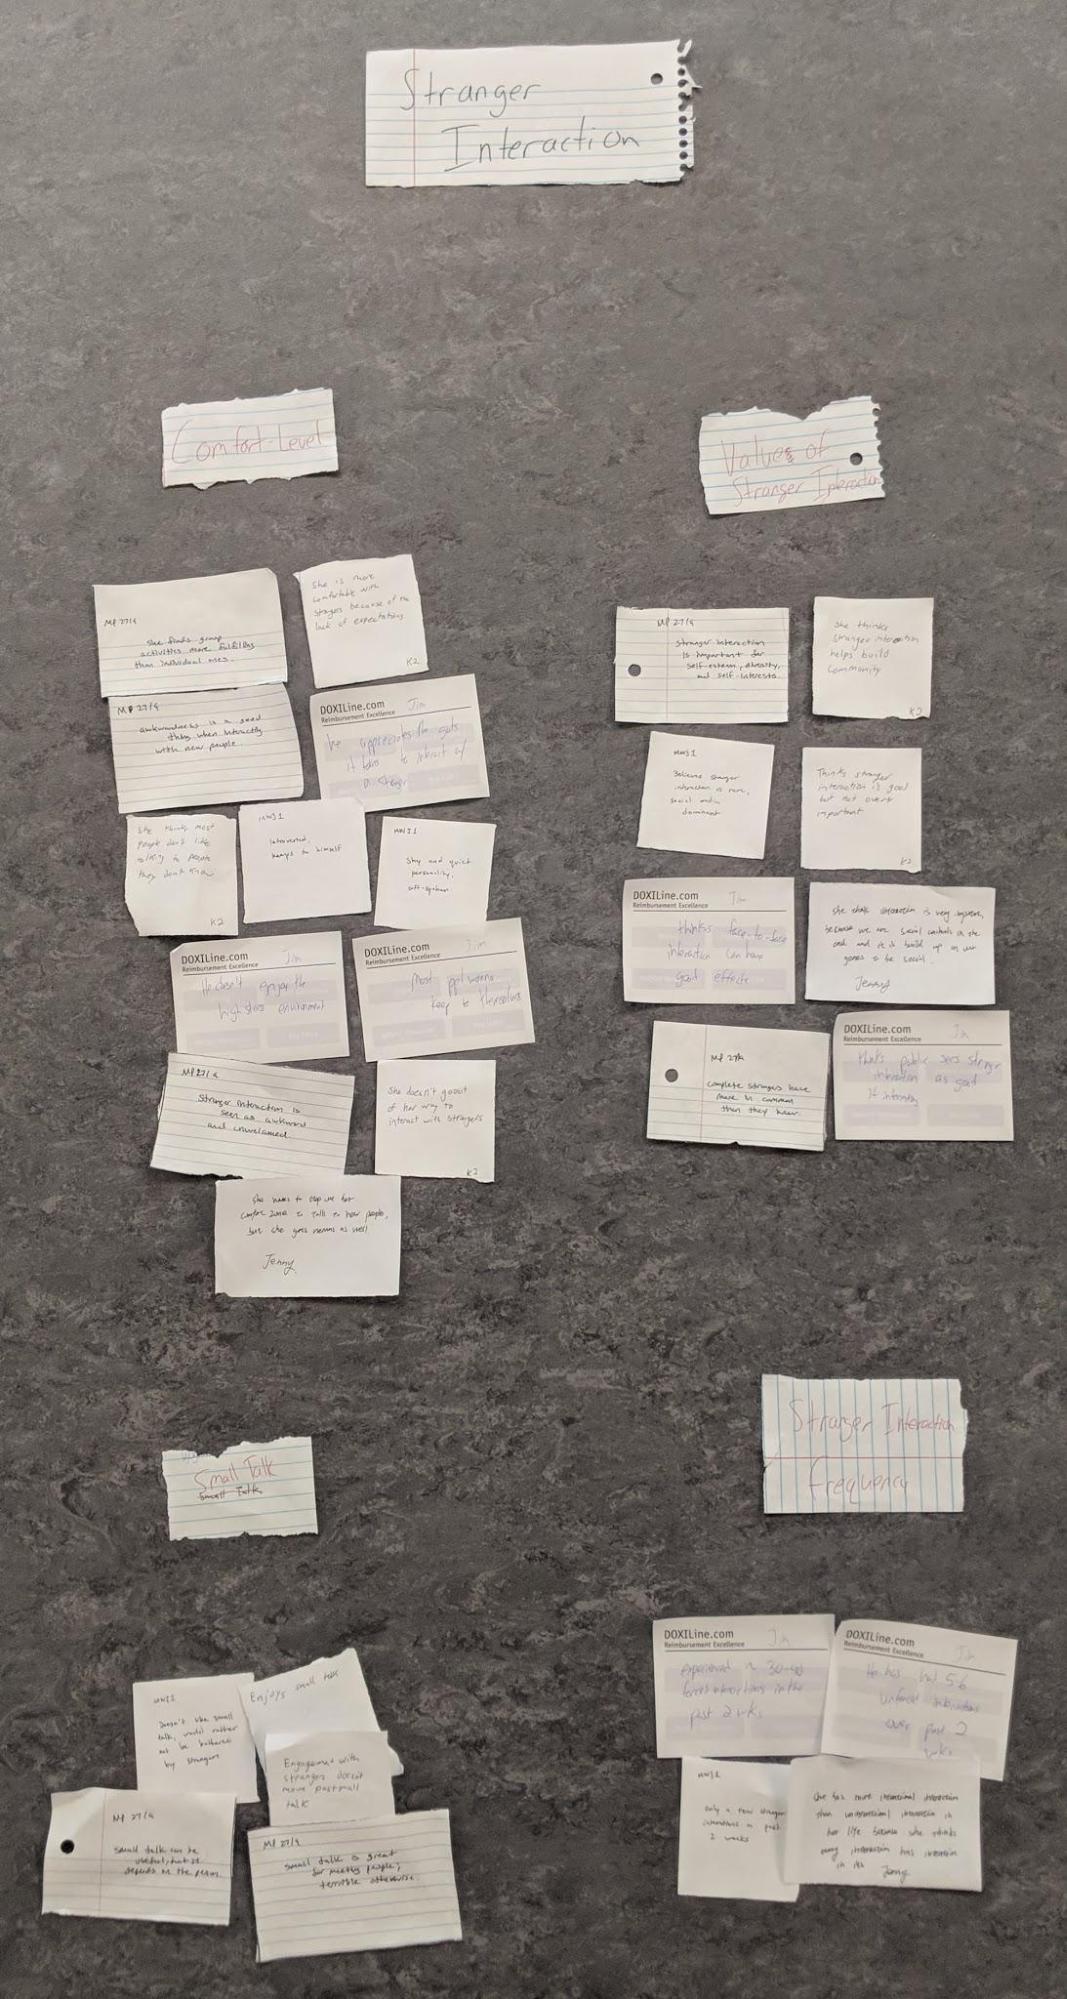 Stranger
Interaction
Comfort-Level
MP 27/9
She finds group
activities more fulfilling
than individual ones.
She is more
comfortable with
strangers because of the
lack of expectations
K2
MP 27/9
awkwardness is a good
thing when
with new people.
DOXILine.com Jim
Reimbursement Excellence
he appreciates the guts
it takes to interact w/
a stranger
She thinks most
people don't like
talking to people
they don't know
K2
MWJ1
Introverted,
keeps to himself
MWJ1
Shy and quiet
personality,
soft-spoken
DOXILine.com Jim
Reimbursement Excellence
He doesn't enjoy the
high stress environment
DOXILine.com Jim
Reimbursement Excellence
Most ppl wanna
keep to themselves
MP 27/9
Stranger interaction is
seen as awkward
and unwelcomed
She doesn't go out
of her way to
interact with strangers
K2
She to step out her
comfort zone to talk to new people,
but she gets nervous as well
Jenny
Values of
Stranger Interaction
MP 27/9
Stranger interaction
is important for
self-esteem, diversity,
and self-interests.
She thinks
stranger interaction
helps build
community
K2
MWJ1
Believes stranger
interaction is rare,
social media
dominant
Thinks stranger
interaction is good
but not overly
important
K2
DOXILine.com Jim
Reimbursement Excellence
thinks face-to-face
interaction can have
good effects
She think interaction is very important,
because we are social animals in the
end and it is build up in our
genes to be social.
Jenny
MP 27/9
Complete strangers have
more in common
than they know.
DOXILine.com Jim
Reimbursement Excellence
thinks public sees stranger
interaction as good
if
Small Talk
Small Talk
MWJ1
Doesn't like small
talk, would rather
not be bothered
by strangers
Enjoys small talk
Engagement with
strangers doesn't
move past small
talk
MP 27/9
Small talk can be
useful, but it
depends on the person.
MP 27/9
Small talk is great
for meeting people;
terrible otherwise.
Stranger Interaction
Frequency
DOXILine.com Jim
Reimbursement Excellence
Experienced ~ 30-40
forced interactions in the
past 2 wks
DOXILine.com Jim
Reimbursement Excellence
He has had 5-6
unforced interactions
over past 2
wks
MWJ1
only a few stranger
interactions in past
2 weeks
She has more intentional interaction
than unintentional interaction in
her life because she thinks
every interaction has intention
in it
Jenny